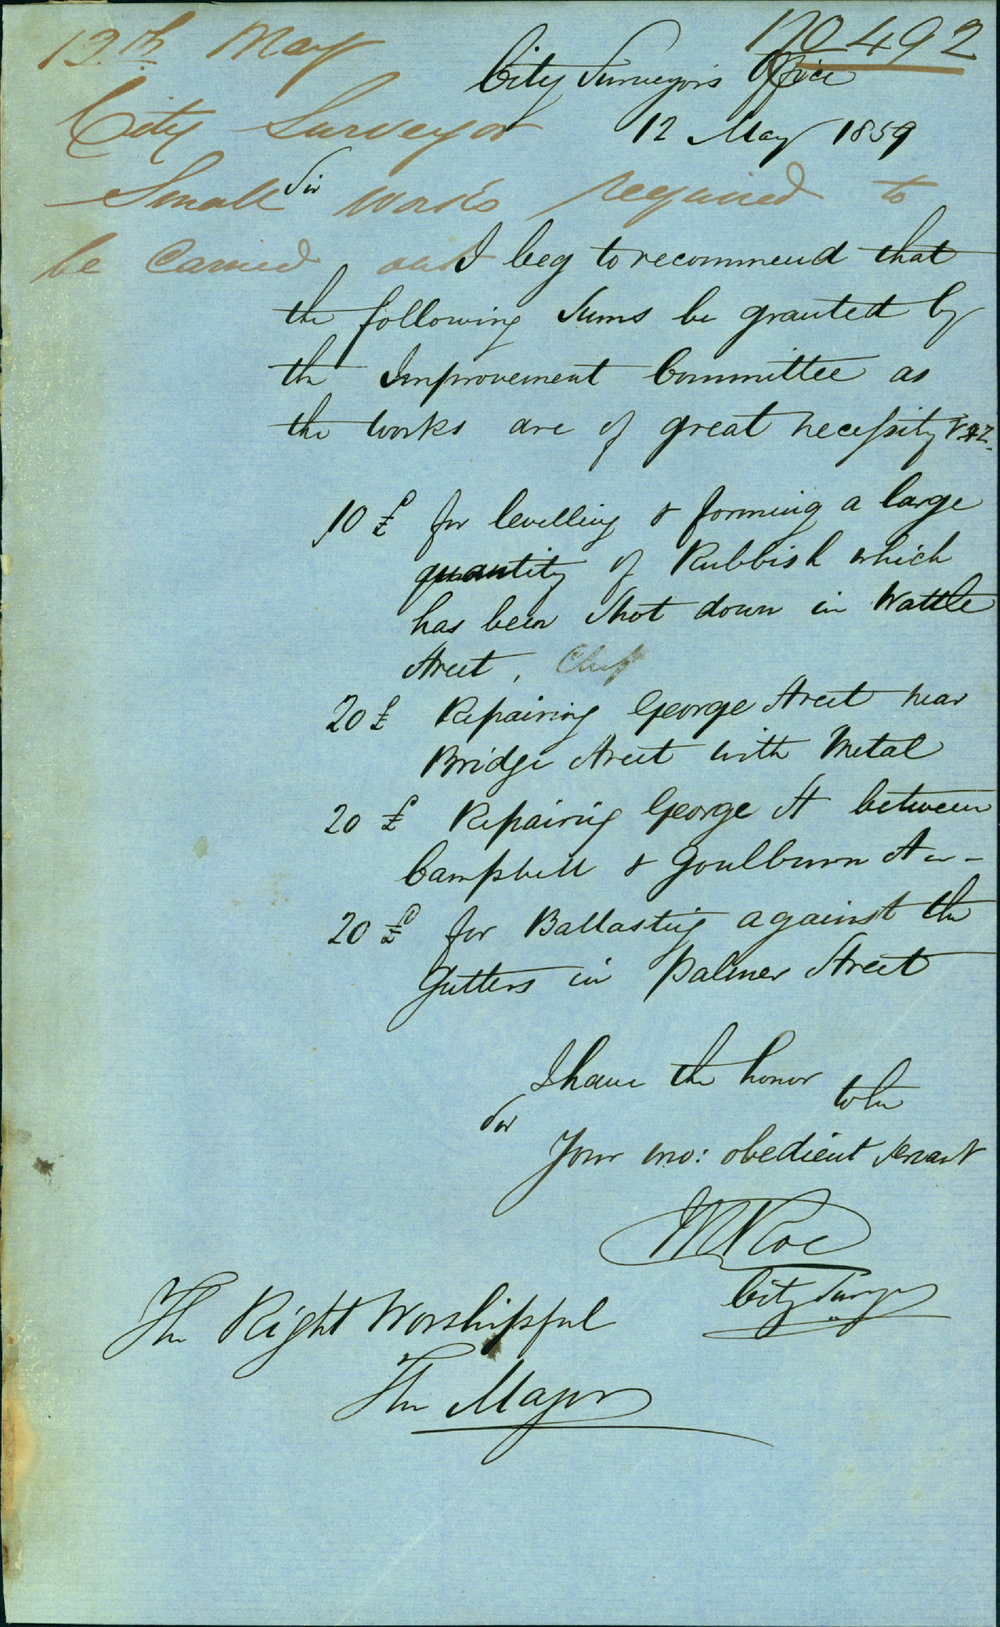 13th May
No 492
City Surveyor
Small works required to
be carried out
City Surveyors Office
12 May 1859
Sir
I beg to recommend that
the following Sums be granted by
the Improvement Committee as
the works are of great necessity viz.
10 £ for levelling & forming a large
quantity of Rubbish which
has been Shot down in Wattle
Street,
20 £ Repairing George Street near
Bridge Street with Metal
20 £ Repairing George St between
Campbell & Goulburn St
20 £ for Ballasting against the
Gutters in Palmer Street
I have the honor
to be
Sir
Your mo: obedient servant
City Surveyor
The Right Worshipful
The Mayor